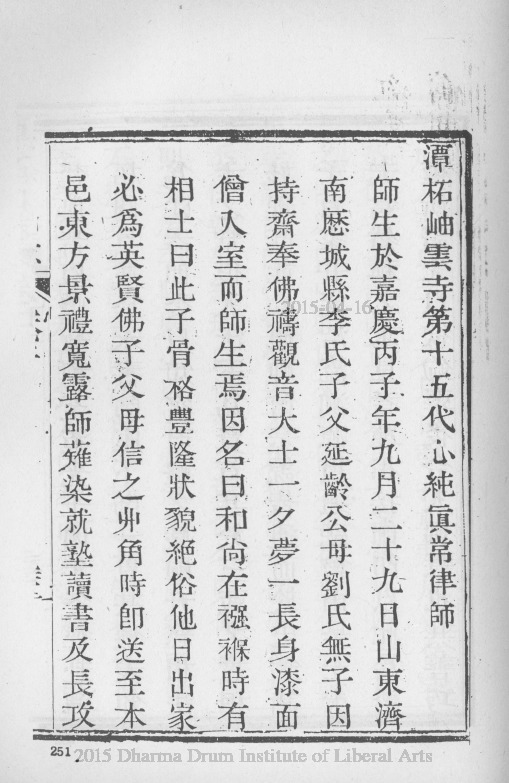 潭柘岫雲寺第十五代心純眞常律師
師生於嘉慶丙子年九月二十九日山東濟
南歷城縣李氏子父延齡公母劉氏無子因
持齋奉佛禱觀音大士一夕夢一長身漆面
僧入室而師生焉因名曰和尚在襁褓時有
相士曰此子骨格豐隆狀貌絕俗他日出家
必爲英賢佛子父母信之丱角時卽送至本
邑東方㬌禮寬露師薙染就塾讀書及長攻
2015-04-16
251
2015 Dharma Drum Institute of Liberal Arts